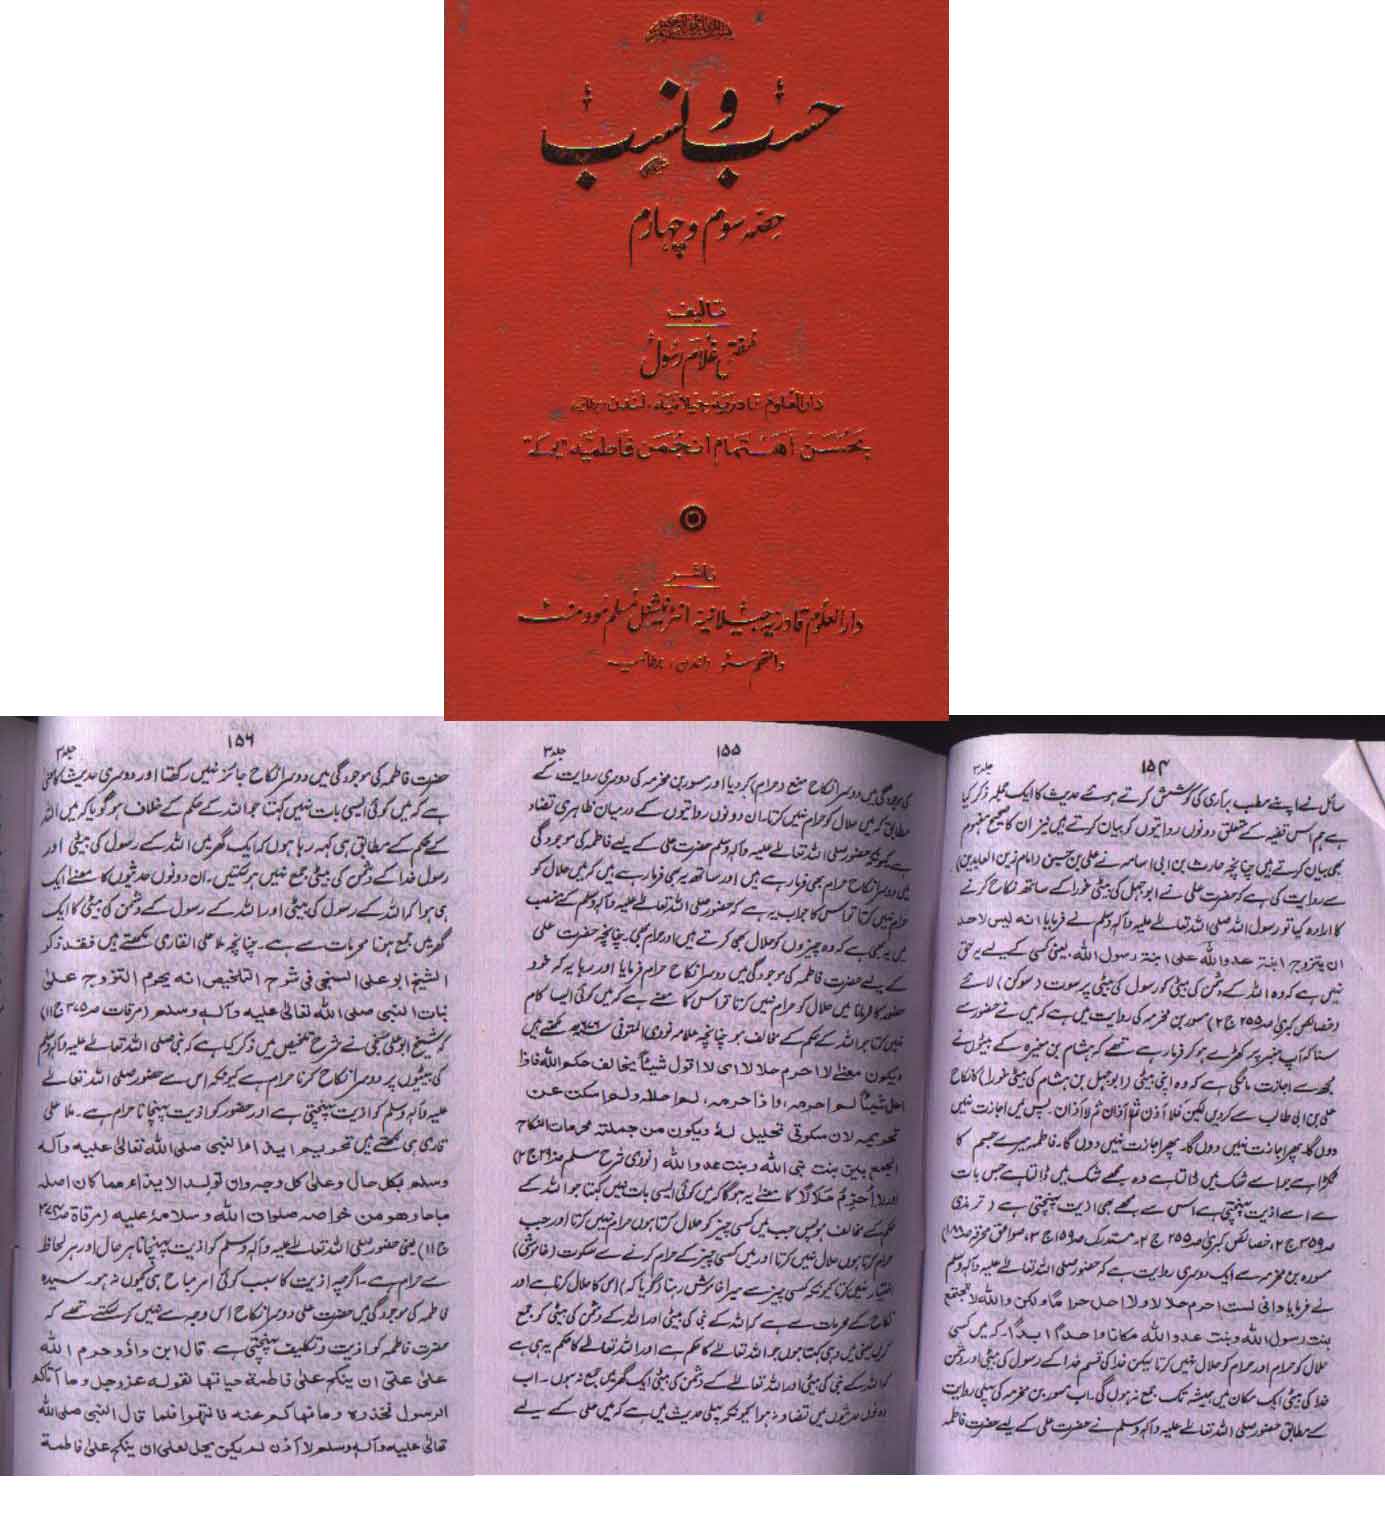 حسب و نسب
حصہ سوم و چہارم
تالیف
مفتی غلام رسول
دارالعلوم قادریہ جیلانیہ، لندن
بحسن اهتمام انجمن فاطمیہ "یوکے"
ناشر
دارالعلوم قادریہ جیلانیہ انٹرنیشنل مسلم موومنٹ
والتھم سٹو (لندن، برطانیہ)
۱۵۴
جلد ۳
سائل نے اپنے مطلب برآری کی کوشش کرتے ہوئے حدیث کا ایک جملہ ذکر کیا
ہے ہم اس قضیہ کے متعلق دونوں روایتوں کو بیان کرتے ہیں نیز ان کا صحیح مفہوم
بھی بیان کرتے ہیں چنانچہ حارث بن ابی اسامہ نے علی بن حسین (امام زین العابدین)
سے روایت کی ہے کہ حضرت علی نے ابوجہل کی بیٹی عوراء کے ساتھ نکاح کرنے
کا ارادہ کیا تو رسول اللہ صلی اللہ تعالےٰ علیہ وآلہ وسلم نے فرمایا انه ليس لاحد
ان يتزوج ابنة عدو الله على ابنة رسول الله، یعنی کسی کے لیے یہ حق
نہیں ہے کہ وہ اللہ کے دشمن کی بیٹی کو رسول کی بیٹی پر سوت (سوکن) لائے
(خصائص کبریٰ صہ ۲۵۵ ج ۲) مسور بن مخرمہ کی روایت میں ہے کہ میں نے حضور سے
سنا کہ آپ منبر پر کھڑے ہو کر فرما رہے تھے کہ ہشام بن مغیرہ کے بیٹوں نے
مجھ سے اجازت مانگی ہے کہ وہ اپنی بیٹی (ابوجہل بن ہشام کی بیٹی عوراء) کا نکاح
علی بن ابی طالب سے کردیں لیکن فلا أذن ثم لا أذن ثم لا أذن۔ پس میں اجازت نہیں
دوں گا۔ پھر اجازت نہیں دوں گا۔ پھر اجازت نہیں دوں گا۔ فاطمہ میرے جسم کا
ٹکڑا ہے جو اسے شک میں ڈالتا ہے وہ مجھے شک میں ڈالتا ہے جس بات
سے اسے اذیت پہنچتی ہے اس سے مجھے بھی اذیت پہنچتی ہے (ترمذی
صہ ۲۵۹ ج ۲، خصائص کبریٰ صہ ۲۵۵ ج ۲۔ مستدرک صہ ۱۵۹ ج ۳، صواعق محرقہ صہ ۱۸۸)
مسور بن مخرمہ سے ایک دوسری روایت ہے کہ حضور صلی اللہ تعالےٰ علیہ وآلہ وسلم
نے فرمایا وانی لست احرم حلالا ولا احل حراما ولكن والله لا تجتمع
بنت رسول الله وبنت عدو الله مكانا واحدا ابدا۔ کہ میں کسی
حلال کو حرام اور حرام کو حلال نہیں کرتا لیکن خدا کی قسم خدا کے رسول کی بیٹی اور دشمن
خدا کی بیٹی ایک مکان میں ہمیشہ تک جمع نہ ہوں گی۔ اب مسور بن مخرمہ کی پہلی روایت
کے مطابق حضور صلی اللہ تعالےٰ علیہ وآلہ وسلم نے حضرت علی کے لیے حضرت فاطمہ
۱۵۵
جلد ۳
کی موجودگی میں دوسرا نکاح منع (حرام) کر دیا اور مسور بن مخرمہ کی دوسری روایت کے
مطابق کہ میں حلال کو حرام نہیں کرتا۔ ان دونوں روایتوں کے درمیان ظاہری تضاد
ہے کیونکہ حضور صلی اللہ تعالےٰ علیہ وآلہ وسلم حضرت علی کے لیے فاطمہ کی موجودگی
میں دوسرا نکاح حرام بھی فرما رہے ہیں اور ساتھ یہ بھی فرما رہے ہیں کہ میں حلال کو
حرام نہیں کرتا تو اس کا جواب یہ ہے کہ حضور صلی اللہ تعالےٰ علیہ وآلہ وسلم کے منصب
میں یہ بھی ہے کہ وہ چیزوں کو حلال بھی کرتے ہیں اور حرام بھی۔ چنانچہ حضرت علی
کے لیے حضرت فاطمہ کی موجودگی میں دوسرا نکاح حرام فرمایا اور رہا یہ کہ خود
حضور کا فرمانا میں حلال کو حرام نہیں کرتا تو اس کا معنے ہے کہ میں کوئی ایسا کام
نہیں کرتا جو اللہ کے حکم کے مخالف ہو چنانچہ علامہ نووی المتوفی ۶۷۶ھ لکھتے ہیں
ويكون معنى لا احرم حلالا اى لا اقول شيئا يخالف حكم الله فاذا
احل شيئا لم احرمه، واذا حرمه، لم احلله ولم اسكت عن
تحريمه لان سكوتى تحليل له ويكون من جملة محرمات النكاح
الجمع بين بنت نبى الله وبنت عدو الله (نووی شرح مسلم صہ ۲۹۰ ج ۲)
اور لا أحرم حلالا کا معنے یہ ہوگا کہ میں کوئی ایسی بات نہیں کہتا جو اللہ کے
حکم کے مخالف ہو پس جب میں کسی چیز کو حلال کرتا ہوں حرام نہیں کرتا اور جب
حرام کرتا ہوں حلال نہیں کرتا اور میں کسی چیز کے حرام کرنے سے سکوت (خاموشی)
اختیار نہیں کرتا کیونکہ کسی چیز سے میرا خاموش رہنا (گویا کہ) اس کا حلال کرنا ہے اور
نکاح کے محرمات سے ہے کہ اللہ کے نبی کی بیٹی اور اللہ کے دشمن کی بیٹی کو جمع
کریں یعنی میں وہی کہتا ہوں جو اللہ تعالےٰ کا حکم ہے اور اللہ تعالےٰ کا حکم یہ ہی ہے
کہ اللہ کے نبی کی بیٹی اور اللہ تعالےٰ کے دشمن کی بیٹی ایک گھر میں جمع نہ ہوں۔ اب
دونوں حدیثوں میں تضاد نہ ہوا کیونکہ پہلی حدیث میں ہے کہ میں علی کے لیے
۱۵۶
جلد ۳
حضرت فاطمہ کی موجودگی میں دوسرا نکاح جائز نہیں رکھتا اور دوسری حدیث کا معنی
ہے کہ میں کوئی ایسی بات نہیں کہتا جو اللہ کے حکم کے خلاف ہو گویا کہ میں اللہ
کے حکم کے مطابق ہی کہہ رہا ہوں کہ ایک گھر میں اللہ کے رسول کی بیٹی اور
رسول خدا کے دشمن کی بیٹی جمع نہیں ہو سکتیں۔ ان دونوں حدیثوں کا معنے ایک
ہی ہوا کہ اللہ کے رسول کی بیٹی اور اللہ کے رسول کے دشمن کی بیٹی کا ایک
گھر میں جمع ہونا محرمات سے ہے۔ چنانچہ ملا علی القاری لکھتے ہیں فقد ذكر
الشيخ ابو على السنجى فى شرح التلخيص انه يحرم التزوج على
بنات النبى صلى الله تعالىٰ عليه وآله وسلم (مرقات صہ ۳۷۵ ج ۱۱)
کہ شیخ ابو علی سنجی نے شرح تلخیص میں ذکر کیا ہے کہ نبی صلی اللہ تعالےٰ علیہ وآلہ وسلم
کی بیٹیوں پر دوسرا نکاح کرنا حرام ہے کیونکہ اس سے حضور صلی اللہ تعالےٰ
علیہ وآلہ وسلم کو اذیت پہنچتی ہے اور حضور کو اذیت پہنچانا حرام ہے۔ ملا علی
قاری ہی لکھتے ہیں تحريم ايذاء النبى صلى الله تعالىٰ عليه وآله
وسلم بكل حال وعلى كل وجه وان تولد الايذاء مما كان اصله
مباحا وهو من خواصه صلوات الله وسلامه عليه (مرقاة صہ ۳۷۴
ج ۱۱) یعنی حضور صلی اللہ تعالےٰ علیہ وآلہ وسلم کو اذیت پہنچانا ہر حال اور ہر لحاظ
سے حرام ہے۔ اگرچہ اذیت کا سبب کوئی امر مباح ہی کیوں نہ ہو۔ سیدہ
فاطمہ کی موجودگی میں حضرت علی دوسرا نکاح اس وجہ سے نہیں کر سکتے تھے کہ
حضرت فاطمہ کو اذیت و تکلیف پہنچتی ہے۔ قال ابن داؤد حرم الله
على على ان ينكح على فاطمة حياتها لقوله عز وجل وما آتاكم
الرسول فخذوه وما نهاكم عنه فانتهوا فلما قال النبى صلى الله
تعالىٰ عليه وآله وسلم لا أذن لم يكن يحل لعلى ان ينكح على فاطمة